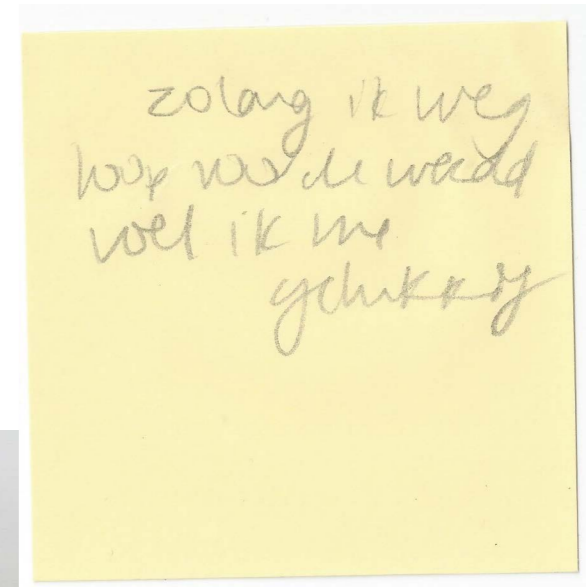 zolang ik weg
loop voor de wereld
voel ik me
gelukkig